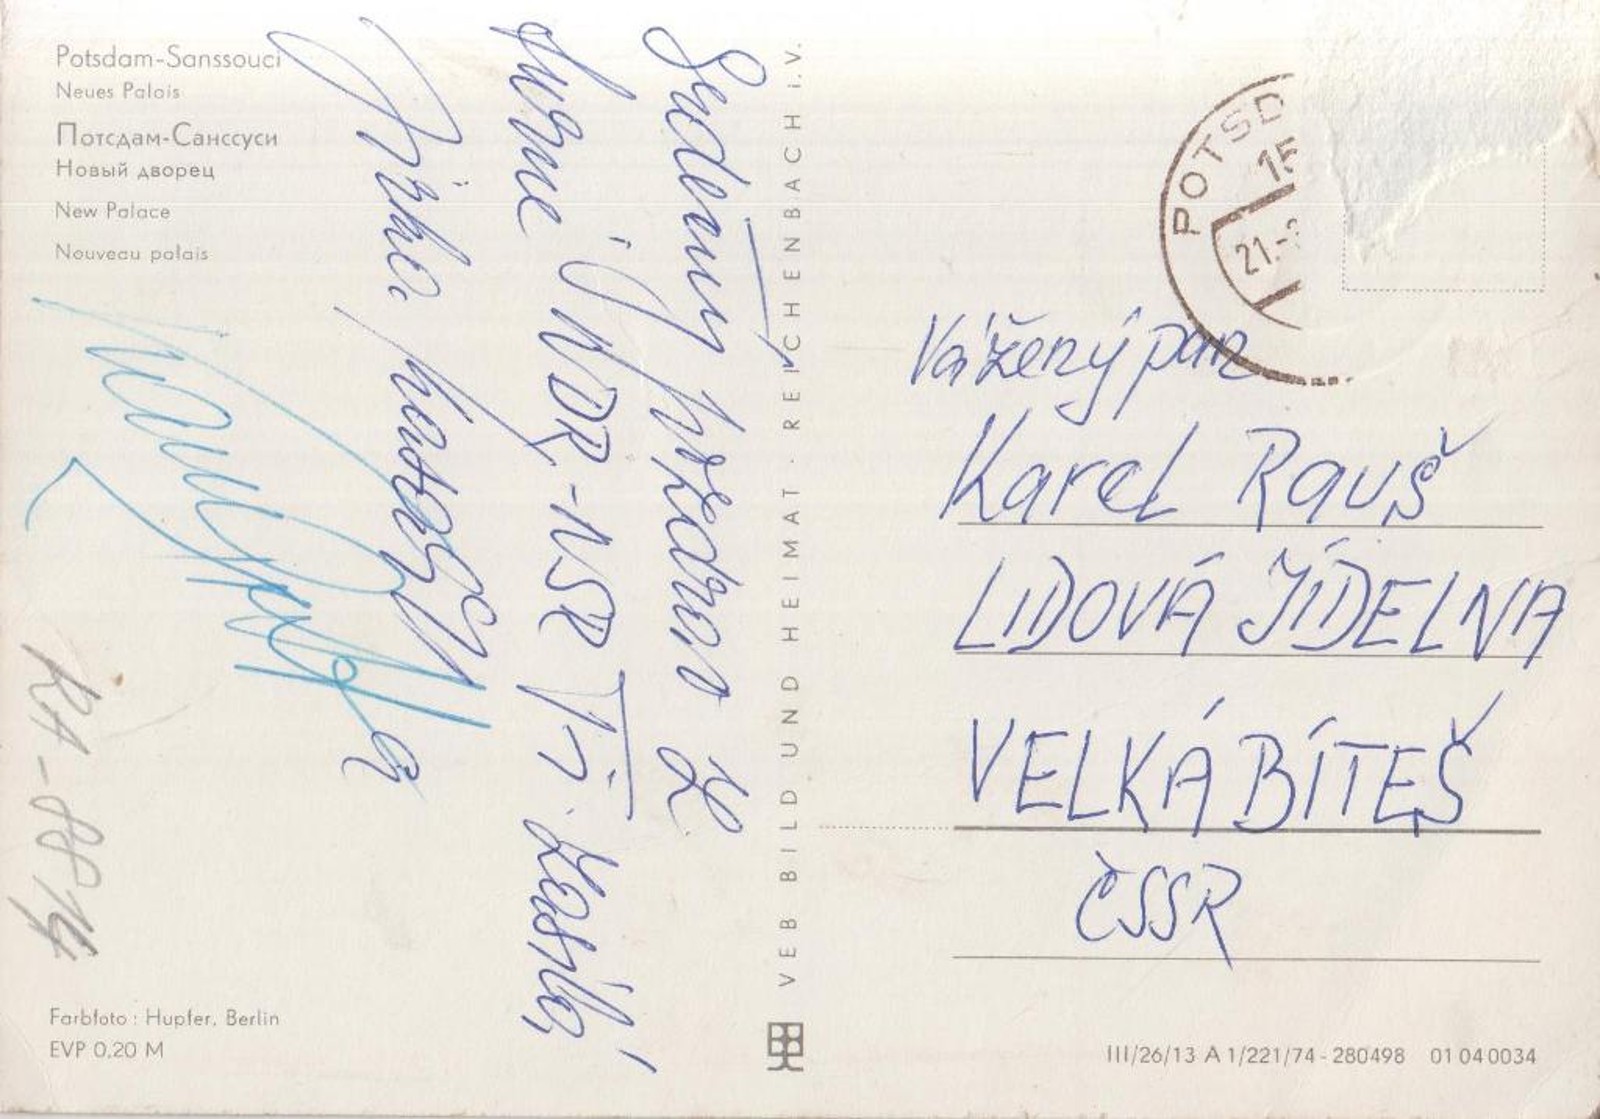 Potsdam-Sanssouci
Neues Palais
Потсдам-Санссуси
Новый дворец
New Palace
Nouveau palais
Srdečný pozdrav z
turné NDR-NSR Ti zasílá
Jirka
RA-8814
Farbfoto: Hupfer, Berlin
EVP 0.20 M
VEB BILD UND HEIMAT REICHENBACH i.V.
POTSD
15
21.-
Vážený pan
Karel Rauš
LIDOVÁ JÍDELNA
VELKÁ BÍTEŠ
ČSSR
III/26/13 A 1/221/74-280498 01 04 0034